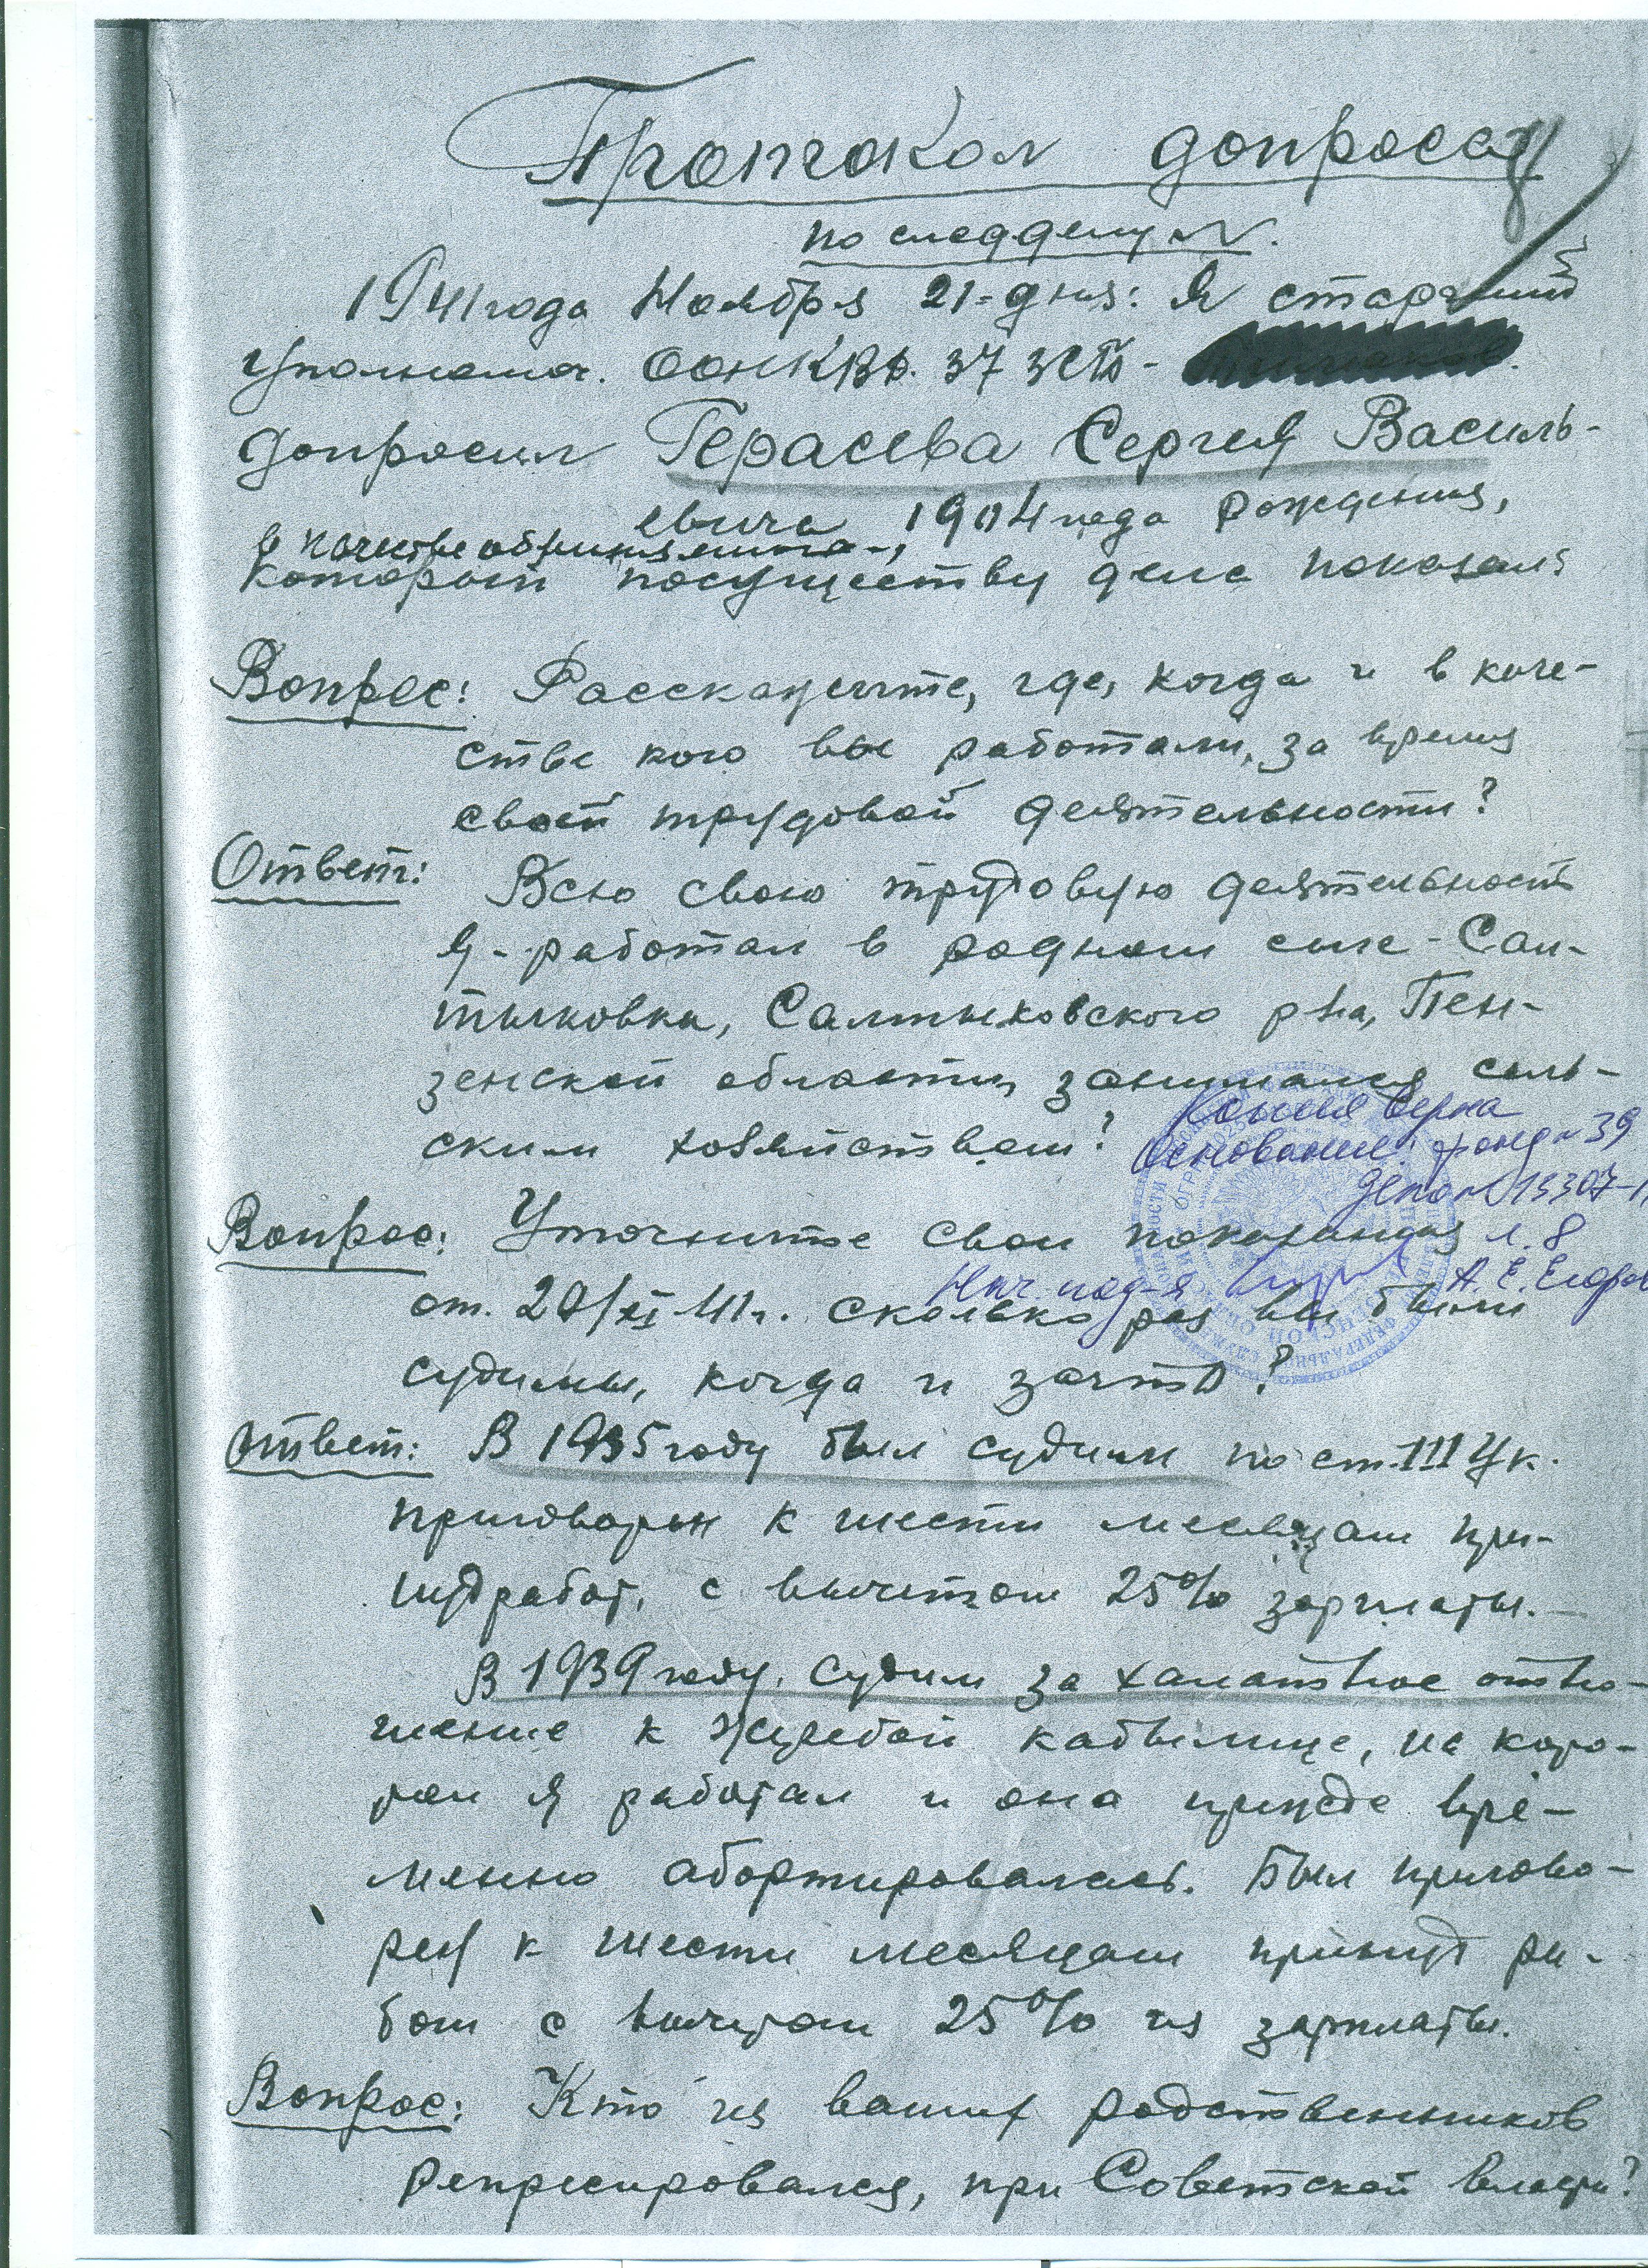 Протокол допроса
по следделу N.
1941 года Ноября 21-дня: Я старший
Уполномоч. ООНКВД. 37 ЗСП-
допросил Герасева Сергея Василь-
евича, 1904 года рождения,
в качестве обвиняемого-,
который посуществу дела показал:
Вопрос: Расскажите, где, когда и в каче-
стве кого вы работали, за время
своей трудовой деятельности?
Ответ: Всю свою трудовую деятельность
Я-работал в родном селе-Сал-
тыковка, Салтыковского р-на, Пен-
зенской области, занимался сель-
ским хозяйством?
Копия верна
Основание: фонд № 39
дело № 13307-
л. 8
Нач. под-я А. Е. Егоров
Вопрос: Уточните свои показания
от. 20/XI-41г. сколько раз вы были
судимы, когда и зачто?
Ответ: В 1935 году был судим по ст. 111 УК.
приговорен к шести месяцам при-
нудработ, с вычетом 25% зарплаты.-
В 1939 году. судим за халатное отно-
шение к жеребой кабылице, на кото-
рой я работал и она прежде вре-
менно абортировалась. Был пригово-
рен к шести месяцам принуд ра-
бот с вычетом 25% из зарплаты.
Вопрос: Кто из ваших родственников
репресировался, при Советской власти?